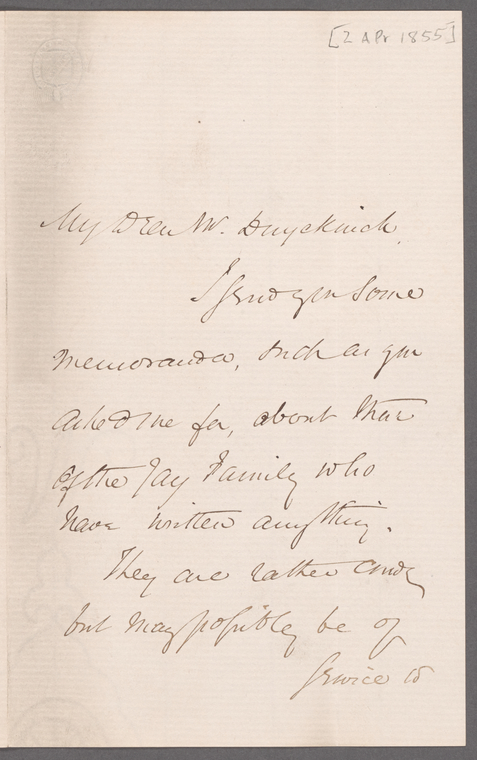 [2 Apr 1855]
My Dear Mr. Duyckinck,
I send you some
memoranda, such as you
asked me for, about those
of the Jay Family who
have written anything.
They are rather crude
but may possibly be of
service to